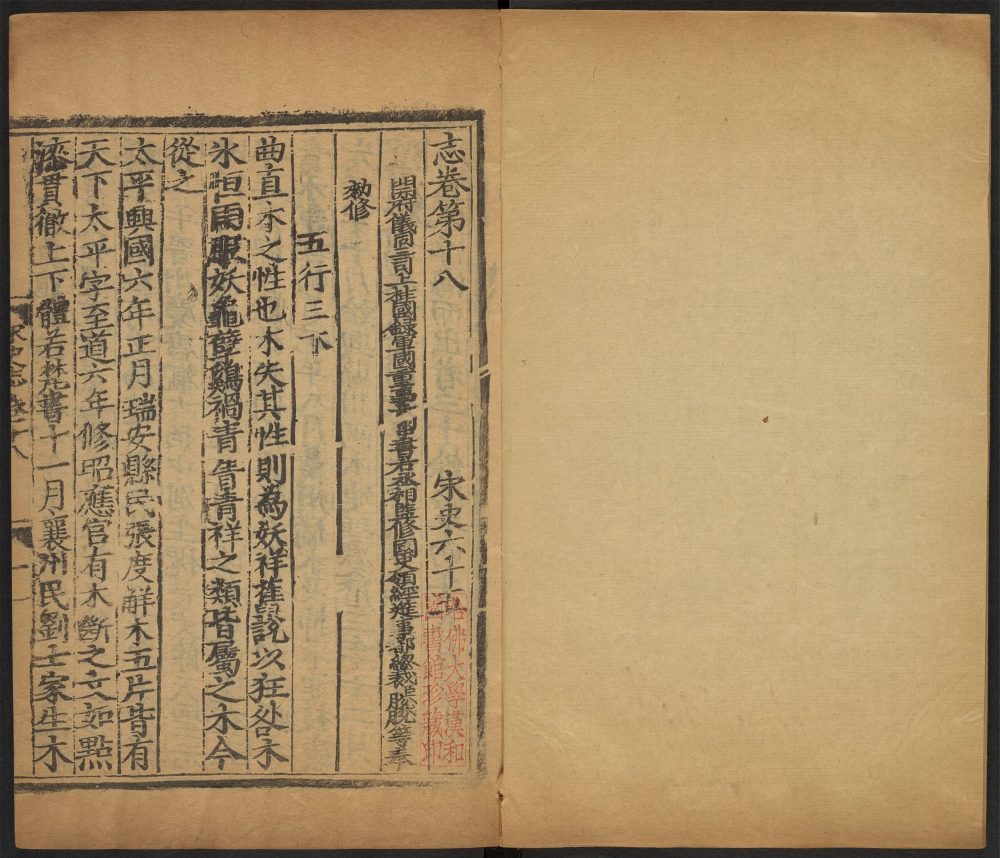 志卷第十八 宋史六十五
開府儀同三司上柱國錄軍國重事前中書右丞相監修國史領經筵事都總裁臣脫脫等奉
勑修
五行三下
曲直木之性也木失其性則為妖祥舊說以狂咎木
氷恒雨服妖龜孽鷄禍青眚青祥之類皆屬之木今
從之
太平興國六年正月瑞安縣民張度解木五片皆有
天下太平字至道六年修昭應宫有木斷之文如點
漆貫徹上下體若梵書十一月襄州民劉士家生木
宋史志卷十八
哈佛大學漢和圖書館珍藏印